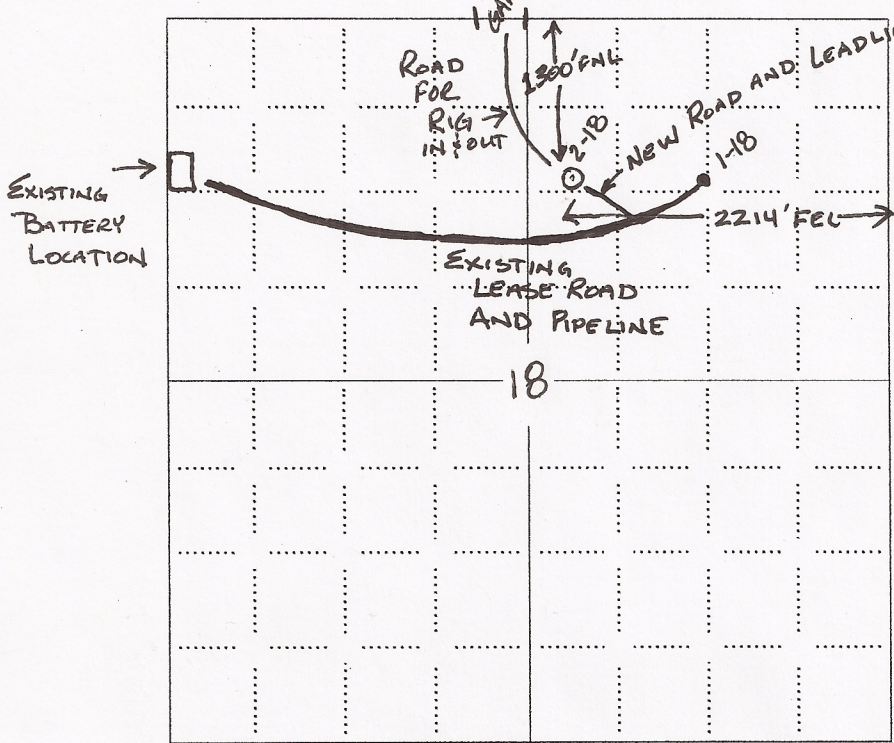 ROAD
FOR
RIG
IN & OUT
1300' FNL
2-18
NEW ROAD AND
1-18
EXISTING
BATTERY
LOCATION
2214' FEL
EXISTING
LEASE ROAD
AND PIPELINE
18